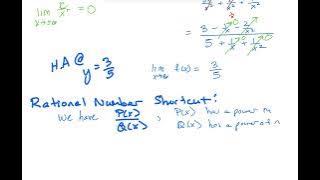 lim 2/x = 0
x→∞
= 3 - 1/x - 2/x²
5 + 1/x + 1/x²
H.A @ y = 3/5
lim f(x) = 3/5
x→∞
Rational Number Shortcut:
We have P(x)/Q(x), P(x) has a power m
Q(x) has a power of n